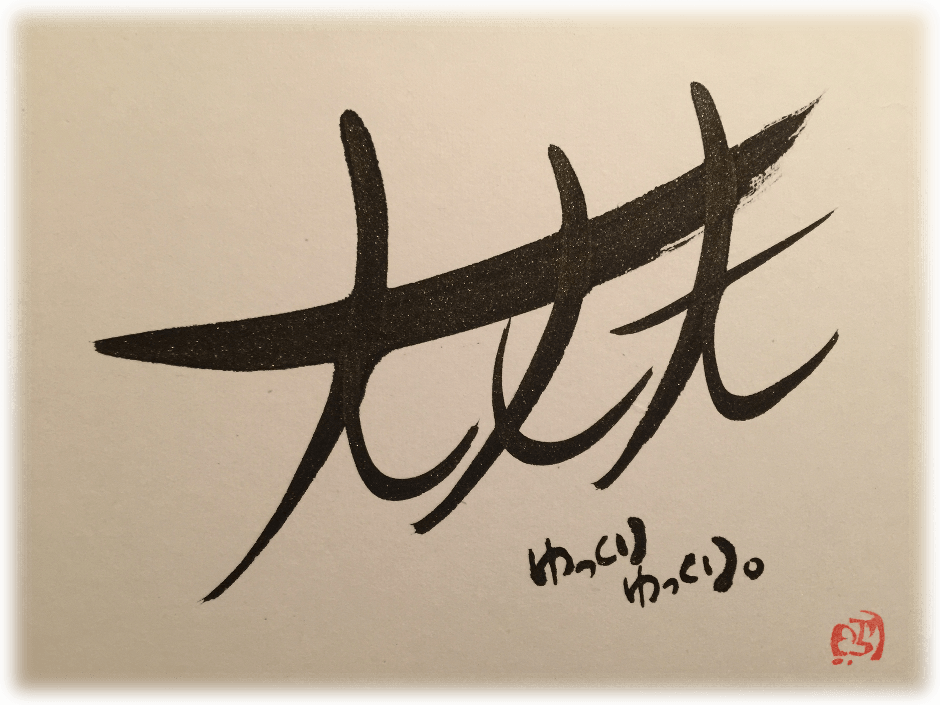 大丈夫
ゆっくり
ゆっくり。